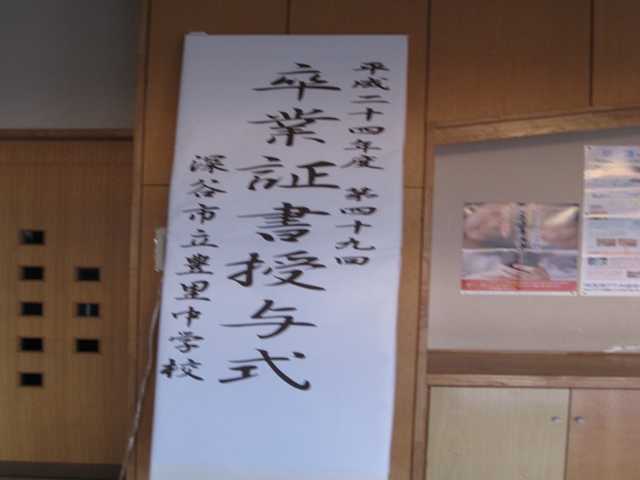 平成二十四年度 第四十九回
卒業証書授与式
深谷市立豊里中学校